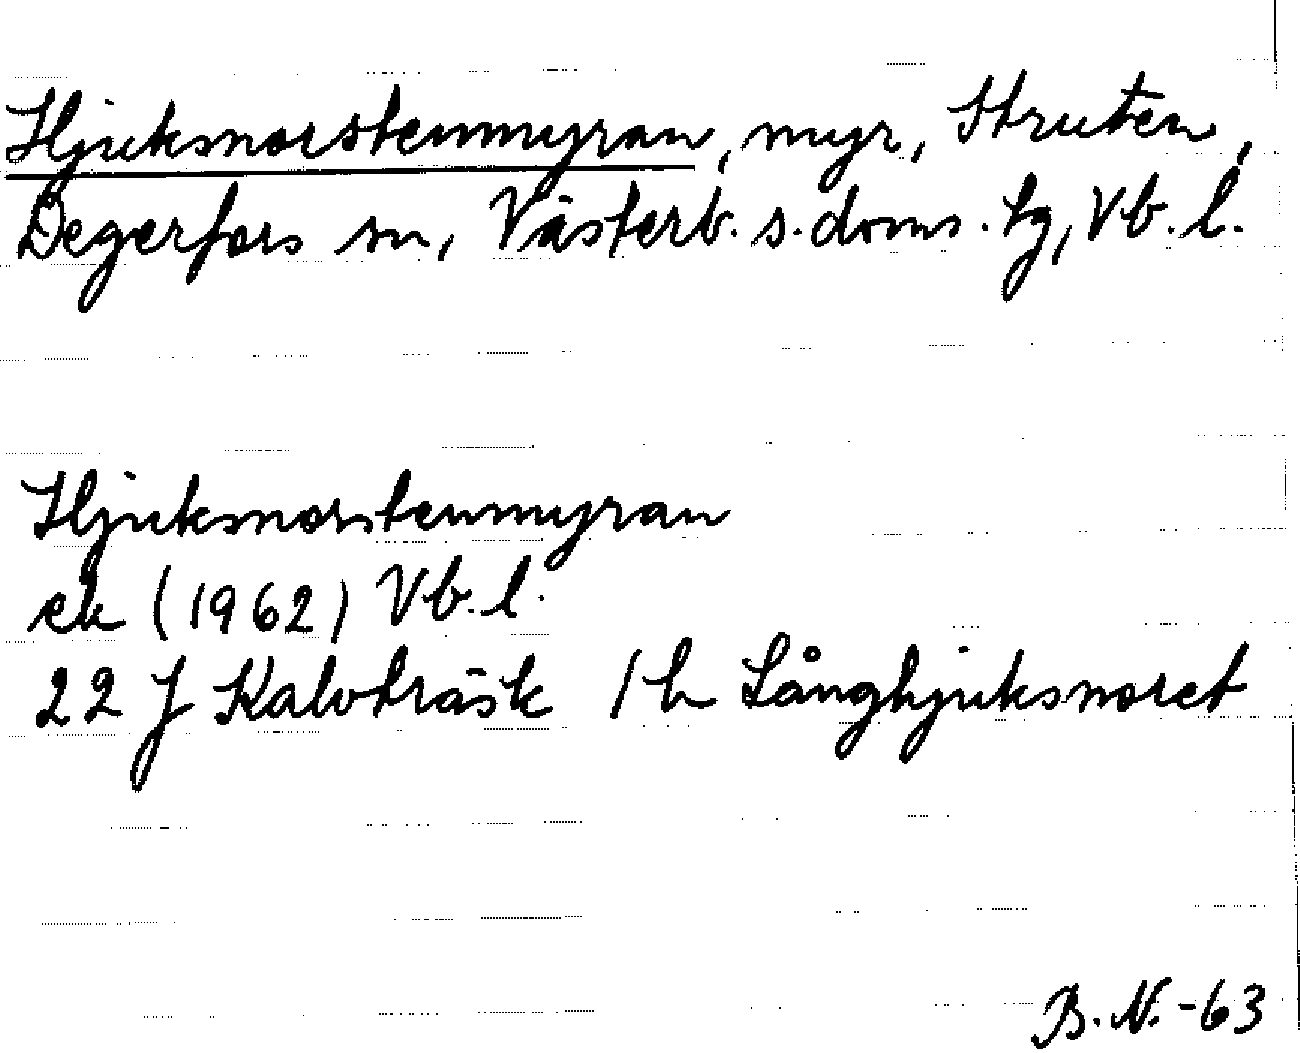 Hjuksnorstenmyran, myr, Struten,
Degerfors sn, Västerb. s. doms. tg, Vb. l.
Hjuksnorstenmyran
ek (1962) Vb. l.
22 J Kalvträsk / h Långhjuksnoret
B. N. -63